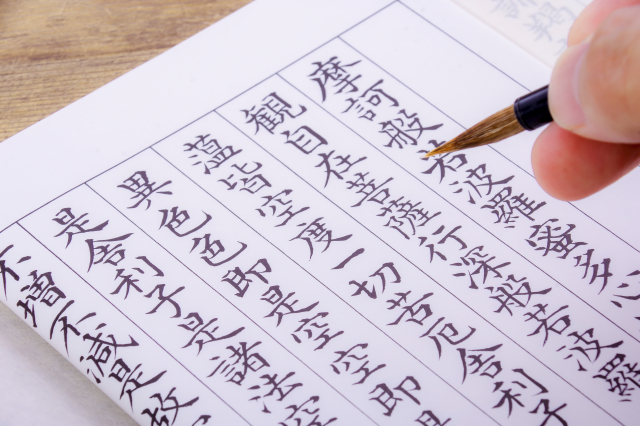 摩訶般若波羅蜜多心
観自在菩薩行深般若波羅
薀皆空度一切苦厄舎利子
異色色即是空空即是
是舎利子是諸法空
不増不減是故